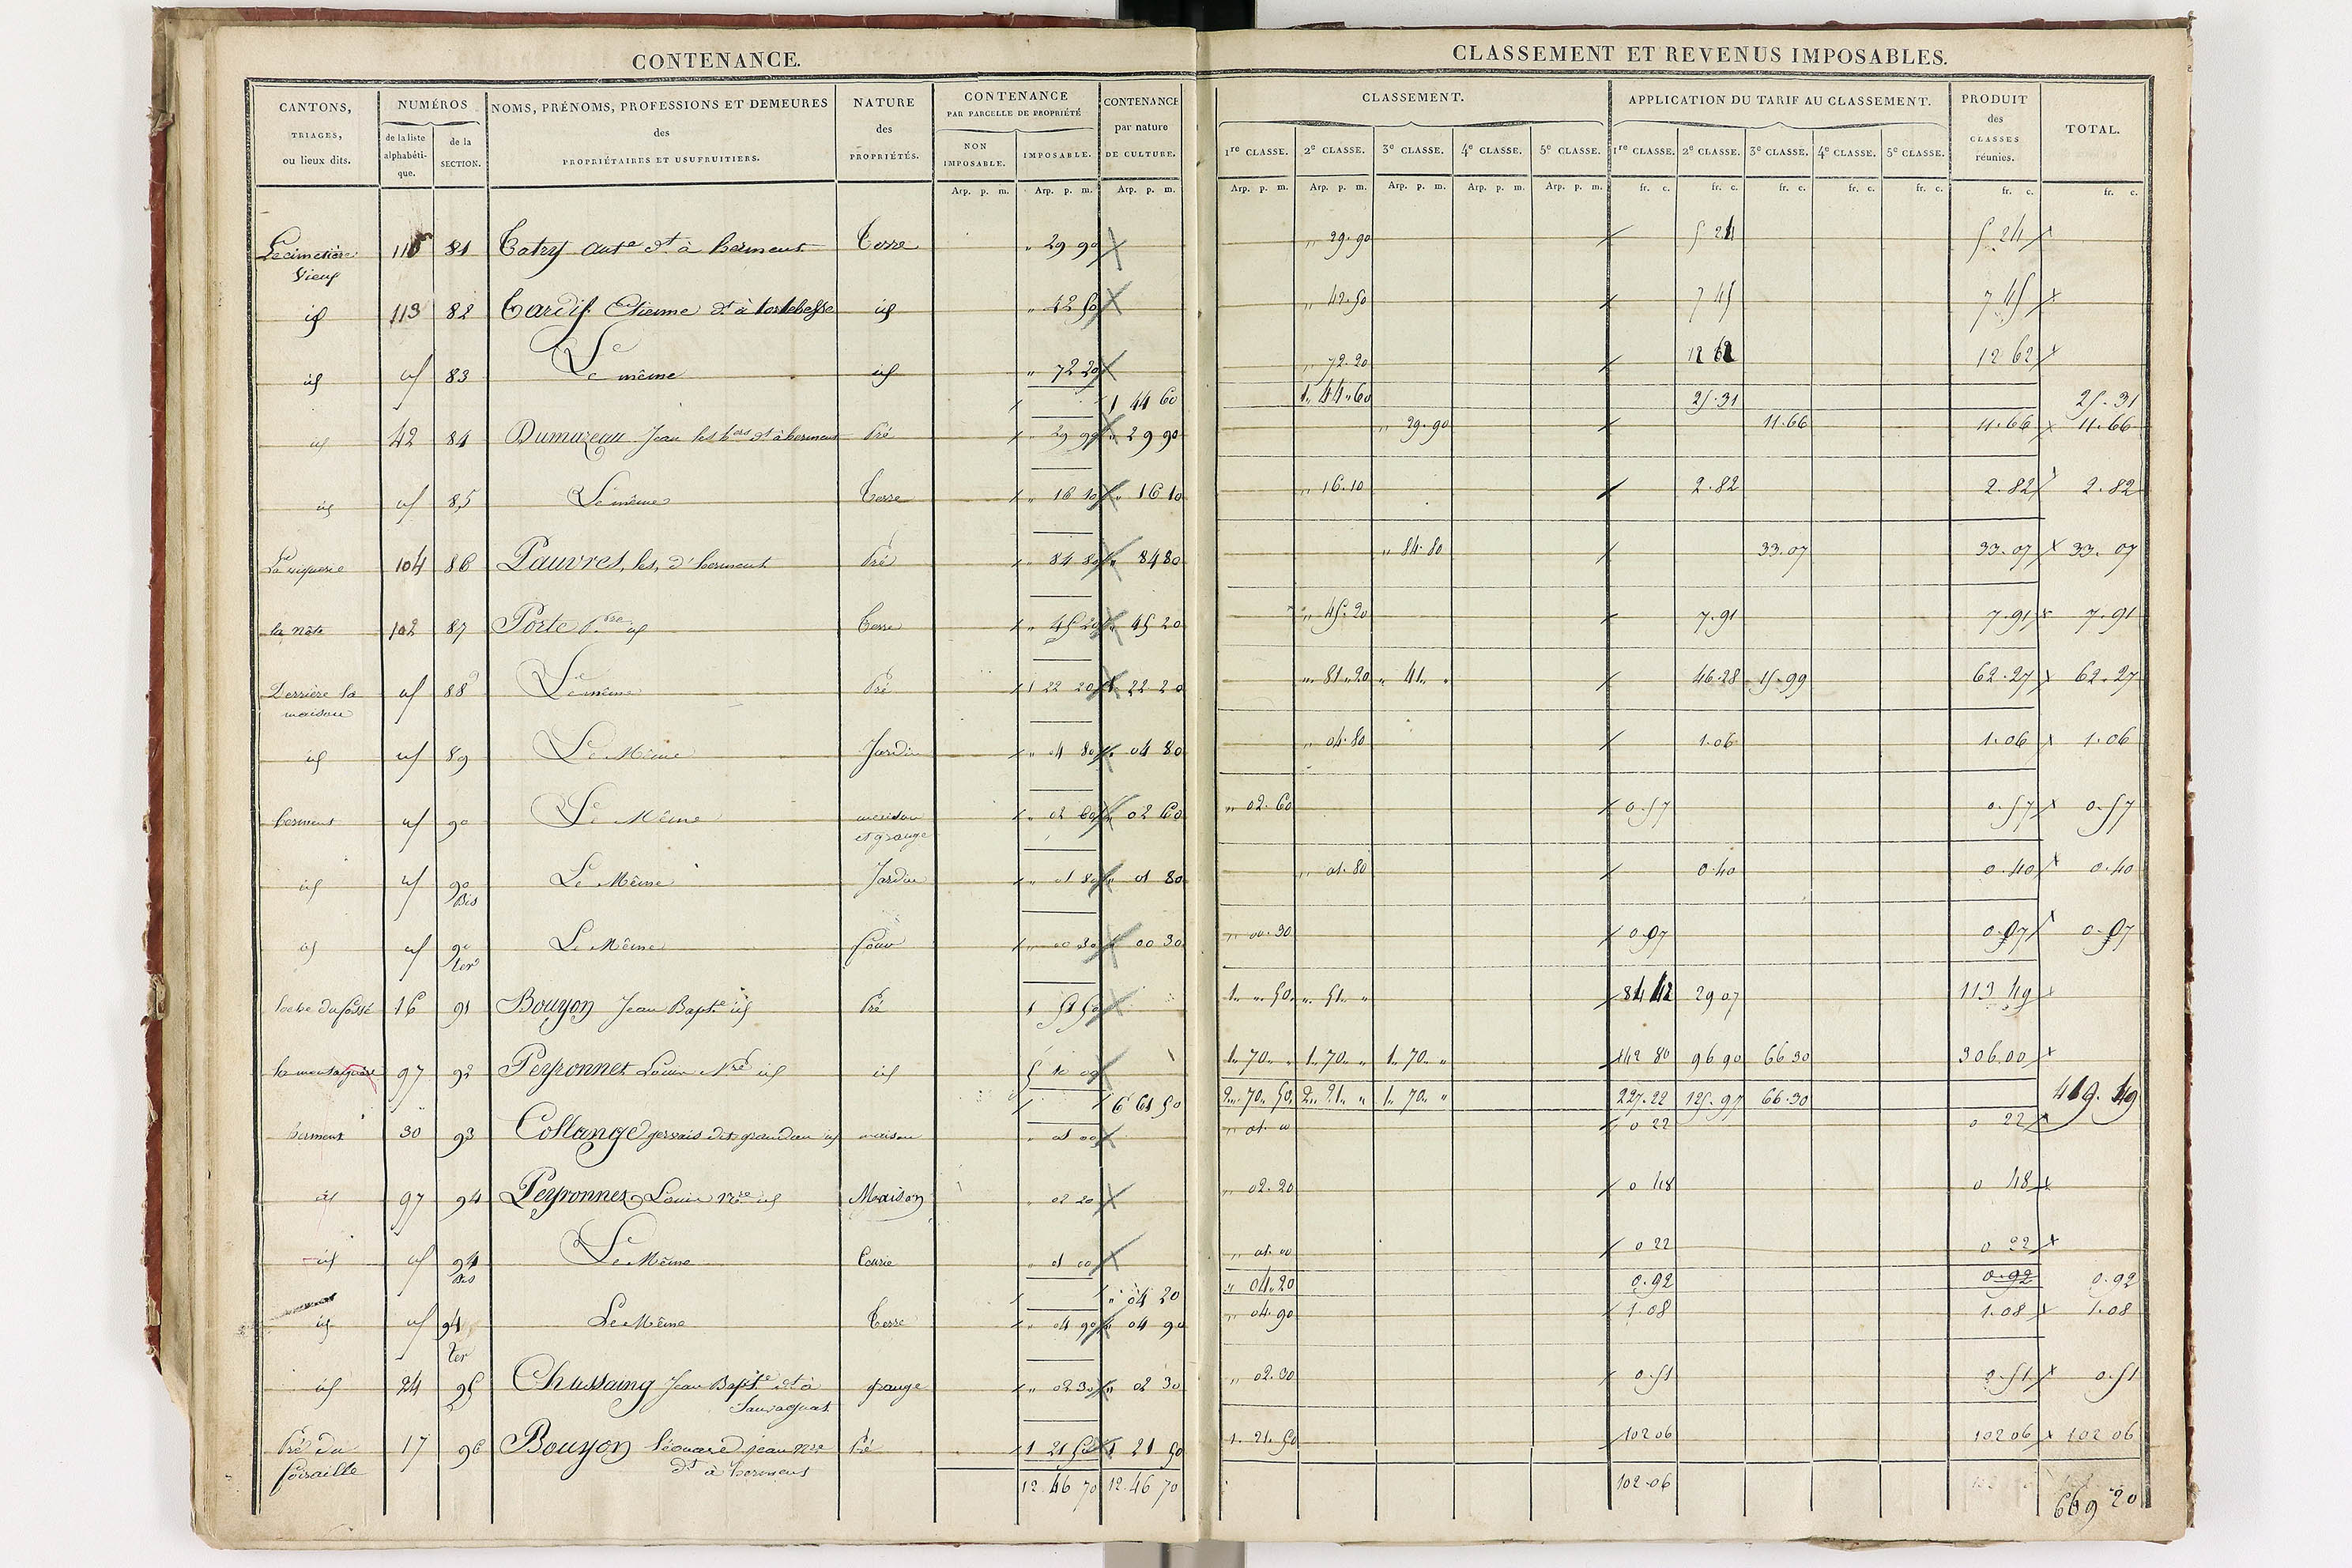 CONTENANCE.
CLASSEMENT ET REVENUS IMPOSABLES.
CANTONS, TRIAGES, ou lieux dits.
NUMÉROS
de la liste alphabéti-que.
de la SECTION.
NOMS, PRÉNOMS, PROFESSIONS ET DEMEURES
des
PROPRIÉTAIRES ET USUFRUITIERS.
NATURE des PROPRIÉTÉS.
CONTENANCE
PAR PARCELLE DE PROPRIÉTÉ
NON IMPOSABLE.
IMPOSABLE.
CONTENANCE par nature DE CULTURE.
CLASSEMENT.
1re CLASSE. 2e CLASSE. 3e CLASSE. 4e CLASSE. 5e CLASSE.
APPLICATION DU TARIF AU CLASSEMENT.
1re CLASSE. 2e CLASSE. 3e CLASSE. 4e CLASSE. 5e CLASSE.
PRODUIT des CLASSES réunies.
TOTAL.
Arp. p. m. Arp. p. m. Arp. p. m. Arp. p. m. Arp. p. m. Arp. p. m. Arp. p. m. Arp. p. m. fr. c. fr. c. fr. c. fr. c. fr. c. fr. c. fr. c.
Le cimetière 115 81 dt à herment Terre " 29 90 " 29.90 5 24 5 24
Vieux
id 113 82 Tardif Etienne dt à tortebesse id " 42 50 " 42.50 7 45 7 45
id id 83 Le même id " 72 20 " 72.20 12 62 12 62
1 44 60 1. 44.60 25.31 25.31
id 42 84 Dumazeau Jean les hers dt à herment Pré " 29 90 " 29 90 " 29.90 11.66 11.66 11.66
id id 85 Le même Terre " 16 10 " 16 10 " 16.10 2.82 2.82 2.82
104 86 Pauvres, les, d'herment Pré " 84 80 " 84 80 " 84.80 33.07 33.07 33.07
102 87 Porte id Terre " 45 20 " 45 20 " 45.20 7.91 7.91 7.91
Derrière la id 88 Le même Pré 1 22 20 1 22 20 " 81.20 " 41. " 46.28 15.99 62.27 62.27
maison
id id 89 Le Même Jardin " 04 80 " 04 80 " 04.80 1.06 1.06 1.06
herment id 90 Le Même maison " 02 60 " 02 60 " 02.60 0.57 0.57 0.57
et grange
id id 90 Le Même Jardin " 01 80 " 01 80 " 01.80 0.40 0.40 0.40
Bis
id id 90 Le Même four " 00 30 " 00 30 " 00.30 0 07 0.07 0.07
ter
16 91 Bouyon Jean Bapte id Pré 1 51 50 1. ". 50. ". 51. " 84 42 29 07 113 49
97 92 Peyronnet Louis Nre id id 5 10 00 1. 70. " 1. 70. " 1. 70. " 142 80 96 90 66 30 306.00
6 61 50 2. 70. 50. 2. 21. " 1. 70. " 227.22 125.97 66.30 419.49
herment 30 93 Collange gervais dit id maison " 01 00 " 01. 00 0 22 0 22
id 97 94 Peyronnet Louis Nre id Maison " 02 20 " 02.20 0 48 0 48
id id 94 Le Même Ecurie " 01 00 " 01.00 0 22 0 22
Bis
" 04 20 " 04.20 0.92 0.92 0.92
id id 94 Le Même Terre " 04 90 " 04 90 " 04.90 1.08 1.08 1.08
ter
id 24 95 Chassaing Jean Bapte dt à grange " 02 30 " 02 30 " 02.30 0.51 0.51 0.51
Sauvagnat
Pré du 17 96 Bouyon léonard jean nre Pré 1 21 50 1 21 50 1. 21. 50 102 06 102 06 102 06
dt à herment
12.46 70 12.46 70 102.06 669 20